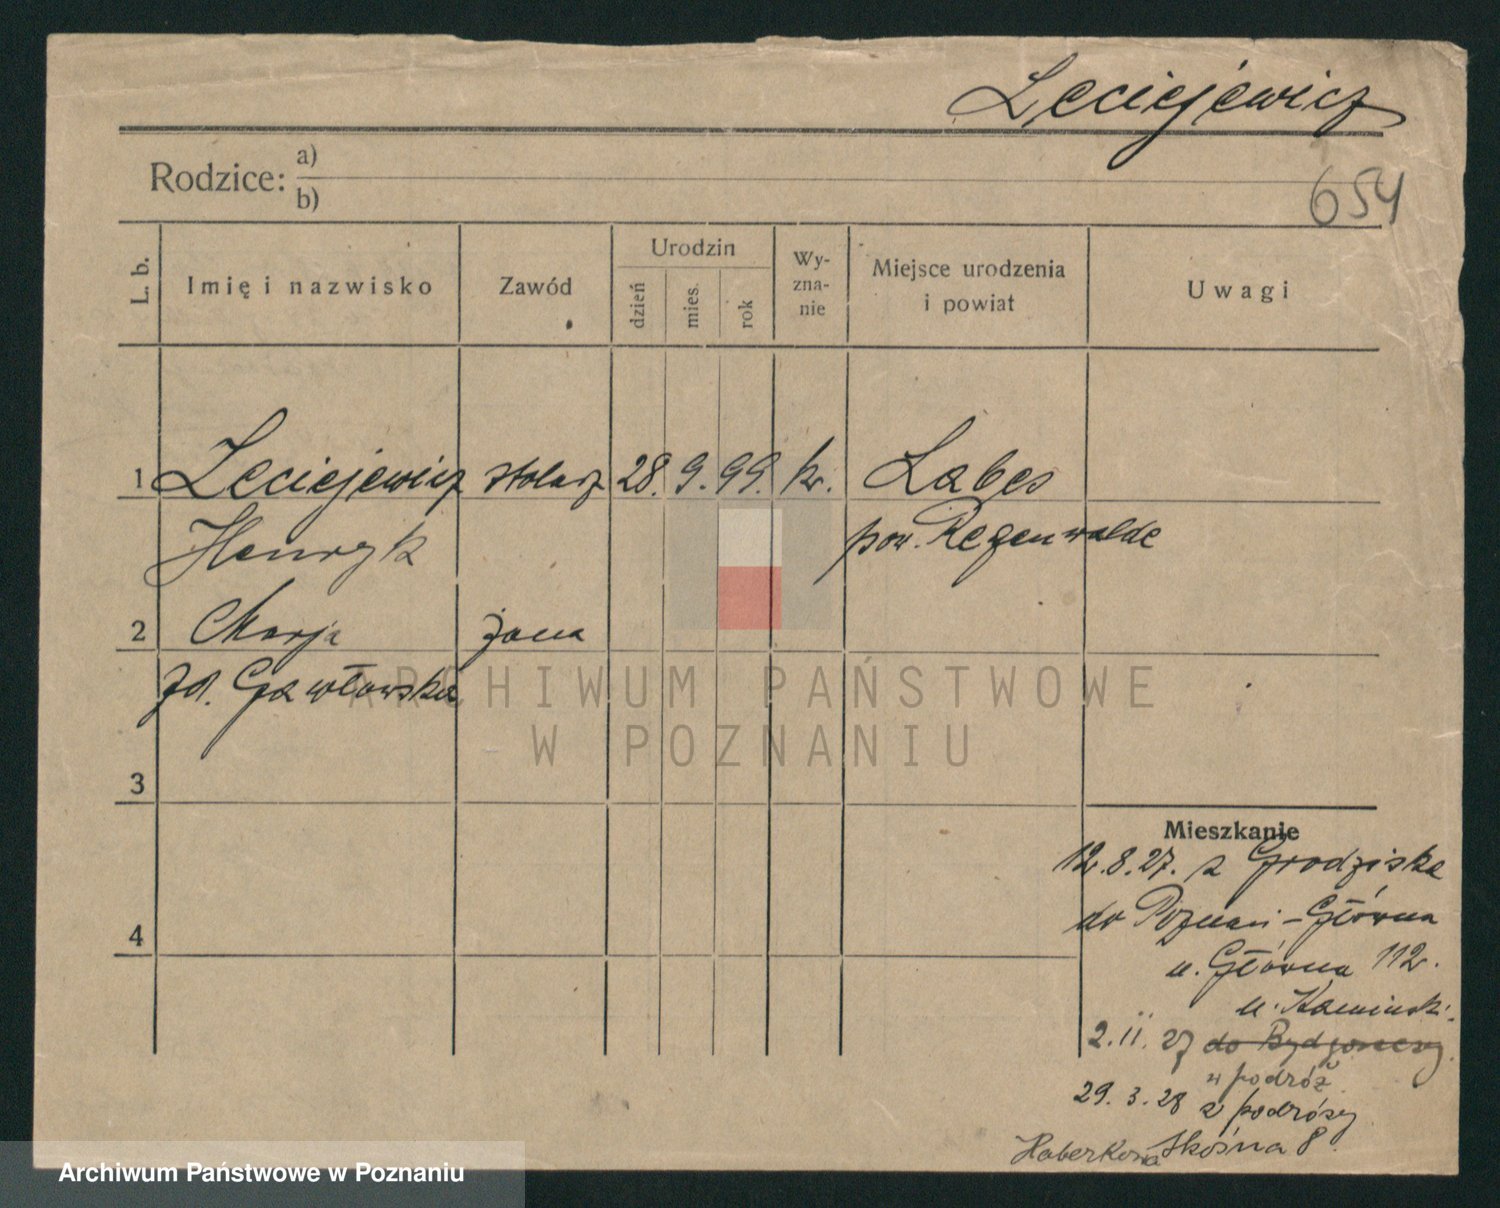 Leciejewicz
Rodzice: a)
b)
654
L. b.
Imię i nazwisko
Zawód
Urodzin
dzień
mies.
rok
Wy-
zna-
nie
Miejsce urodzenia
i powiat
Uwagi
1 Leciejewicz stolarz 28. 9. 99. kr. Labes
Henryk pow. Regenwalde
2 Marja żona
zd. Gawłowska
ARCHIWUM PAŃSTWOWE
W POZNANIU
3
4
Mieszkanie
12.8.27. z Grodziska
do Poznań-Główna
u. Główna 112.
u. Kamiński.
2.11.27 do Bydgoszczy
w podróż
29.3.28 z podróży
Skośna 8.
Archiwum Państwowe w Poznaniu